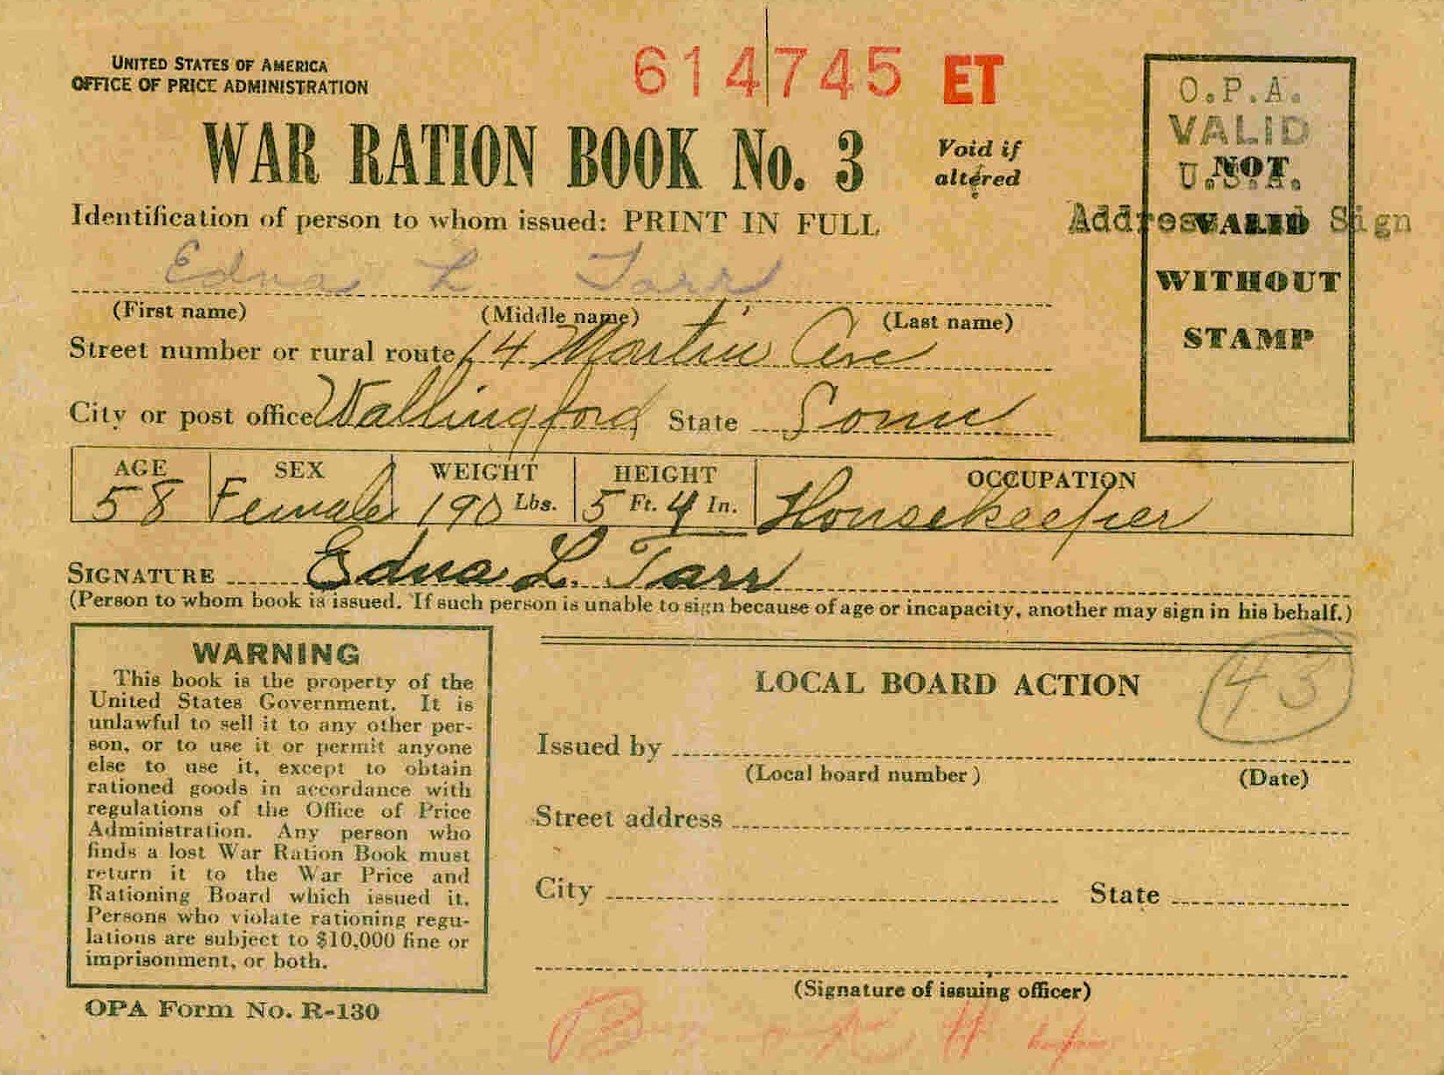 UNITED STATES OF AMERICA
OFFICE OF PRICE ADMINISTRATION
614745 ET
WAR RATION BOOK No. 3
Void if
altered
Identification of person to whom issued: PRINT IN FULL
Edna L Tarr
(First name) (Middle name) (Last name)
Street number or rural route 14 Martin Ave
City or post office Wallingford State Conn
AGE SEX WEIGHT HEIGHT OCCUPATION
58 Female 190 Lbs. 5 Ft. 4 In. Housekeeper
SIGNATURE Edna L. Tarr
(Person to whom book is issued. If such person is unable to sign because of age or incapacity, another may sign in his behalf.)
O.P.A.
VALID
U.S.A.
Address Sign
NOT
VALID
WITHOUT
STAMP
WARNING
This book is the property of the
United States Government. It is
unlawful to sell it to any other per-
son, or to use it or permit anyone
else to use it, except to obtain
rationed goods in accordance with
regulations of the Office of Price
Administration. Any person who
finds a lost War Ration Book must
return it to the War Price and
Rationing Board which issued it.
Persons who violate rationing regu-
lations are subject to $10,000 fine or
imprisonment, or both.
OPA Form No. R-130
LOCAL BOARD ACTION
43
Issued by
(Local board number) (Date)
Street address
City State
(Signature of issuing officer)